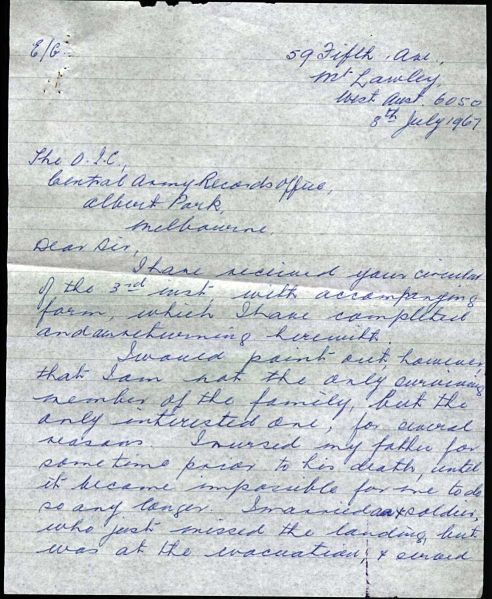 E/G.
59 Fifth Ave.,
Mt Lawley
West Aust. 6050
8th July 1967
The O.I.C.,
Central Army Records Office,
Albert Park,
Melbourne.
Dear Sir,
I have received your circular
of the 3rd inst, with accompanying
form, which I have completed
and am returning herewith.
I would point out, however,
that I am not the only surviving
member of the family, but the
only interested one, for several
reasons. I nursed my father for
some time prior to his death, until
it became impossible for me to do
so any longer. I married an x soldier,
who just missed the landing, but
was at the evacuation, & served